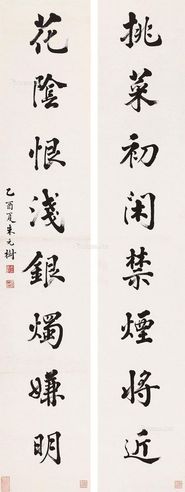 挑菜初闲禁煙将近
花陰恨淺銀燭嫌明
乙酉夏朱元樹